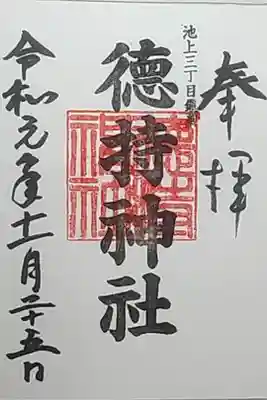 奉拝
池上三丁目鎮座
徳持神社
令和元年十一月二十五日